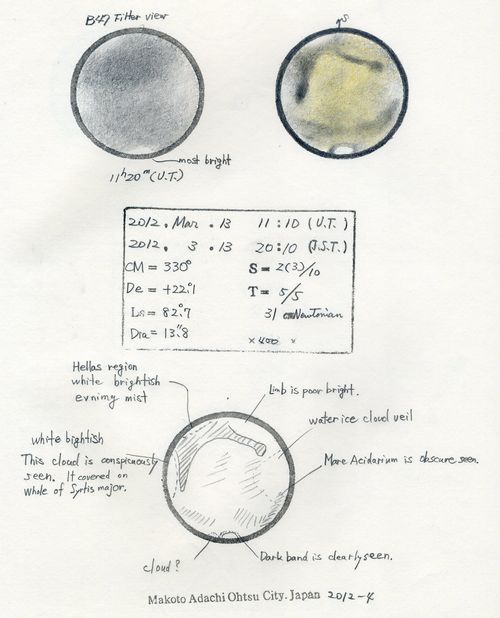 B47 Filter view
↑S
most bright
11h20m (U.T.)
2012. Mar. 13 11:10 (U.T.)
2012. 3. 13 20:10 (J.S.T.)
CM = 330° S = 2(3)/10
De = +22.°1 T = 5/5
Ls = 82.°7 31 cm Newtonian
Dia = 13."8 ×400 ×
Hellas region
white brightish
evnimy mist
Limb is poor bright.
water ice cloud veil
white bightish
This cloud is conspicuously
seen. It covered on
whole of Syrtis major.
Mare Acidarium is obscure seen.
cloud?
Dark band is clearly seen.
Makoto Adachi Ohtsu City. Japan 2012-4